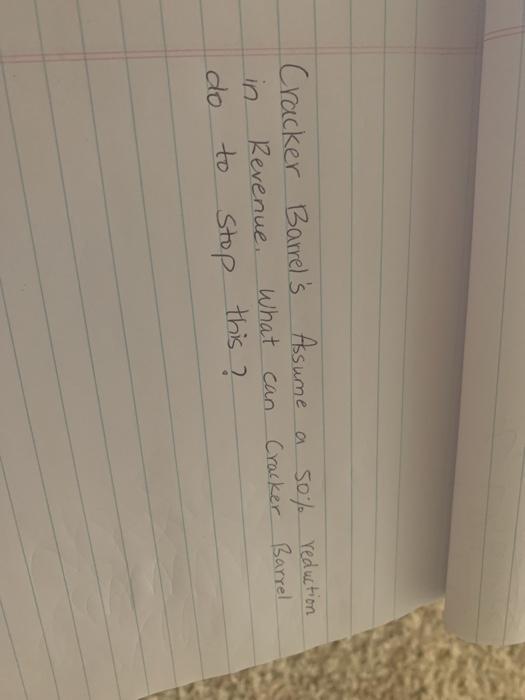 Cracker Barrel's Assume a 50% reduction
in Revenue. What can Cracker Barrel
do to stop this?